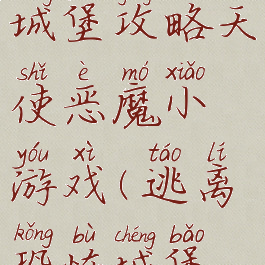 城堡攻略天
shǐ è mó xiǎo
使恶魔小
yóu xì táo lí
游戏(逃离
kǒng bù chéng bǎo
恐怖城堡